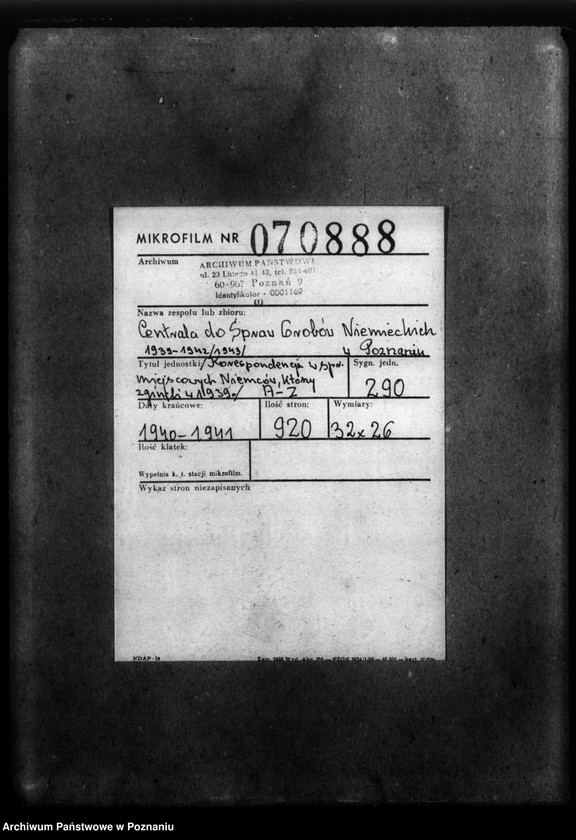 MIKROFILM NR 070888
Archiwum
ARCHIWUM PAŃSTWOWE
ul. 23 Lutego 41/43, tel. 524-601
60-967 Poznań 9
Identyfikator - 0001169
(1)
Nazwa zespołu lub zbioru:
Centrala do Spraw Grobów Niemieckich
1939-1942/1943/ w Poznaniu
Tytuł jednostki: /Korespondencja w spr.
miejscowych Niemców, którzy
zginęli w 1939r./ A-Z
Sygn. jedn.
290
Daty krańcowe:
1940-1941
Ilość stron:
920
Wymiary:
32x26
Ilość klatek:
Wypełnia k. t. stacji mikrofilm.
Wykaz stron niezapisanych
NDAP-19
Archiwum Państwowe w Poznaniu